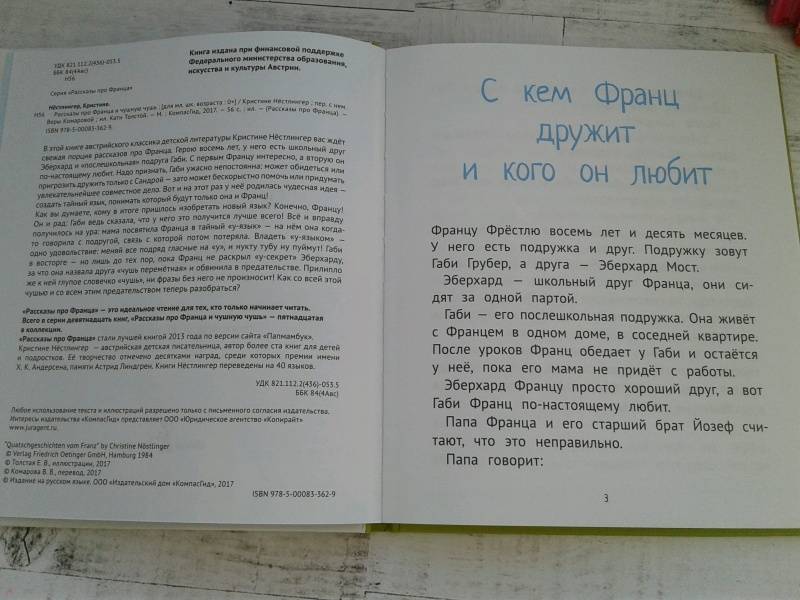 УДК 821.112.2(436)-053.5
ББК 84(4Авс)
Н56
Книга издана при финансовой поддержке
Федерального министерства образования,
искусства и культуры Австрии.
Серия «Рассказы про Франца»
Нёстлингер, Кристине.
Н56 Рассказы про Франца и чушную чушь : [для мл. шк. возраста : 0+] / Кристине Нёстлингер ; пер. с нем.
Веры Комаровой ; ил. Кати Толстой. — М. : КомпасГид, 2017. — 56 с. : ил. — (Рассказы про Франца). —
ISBN 978-5-00083-362-9
В этой книге австрийского классика детской литературы Кристине Нёстлингер вас ждёт
свежая порция рассказов про Франца. Герою восемь лет, у него есть школьный друг
Эберхард и «послешкольная» подруга Габи. С первым Францу интересно, а вторую он
по-настоящему любит. Надо признать, Габи ужасно непостоянна: может обидеться или
пригрозить дружить только с Сандрой — зато может бескорыстно помочь или придумать
увлекательнейшее совместное дело. Вот и на этот раз у неё родилась чудесная идея —
создать тайный язык, понимать который будут только она и Франц!
Как вы думаете, кому в итоге пришлось изобретать новый язык? Конечно, Францу!
Он и рад: Габи ведь сказала, что у него это получится лучше всего! Всё и вправду
получилось на ура: мама посвятила Франца в тайный «у-язык» — на нём она когда-
то говорила с подругой, связь с которой потом потеряла. Владеть «у-языком» —
одно удовольствие: меняй все подряд гласные на «у», и нукту тубу ну пуймут! Габи
в восторге — но лишь до тех пор, пока Франц не раскрыл «у-секрет» Эберхарду,
за что она назвала друга «чушь перемётная» и обвинила в предательстве. Прилипло
же к ней глупое словечко «чушь», ни фразы без него не произносит! Как со всей этой
чушью и со всем этим предательством теперь разобраться?
«Рассказы про Франца» — это идеальное чтение для тех, кто только начинает читать.
Всего в серии девятнадцать книг, «Рассказы про Франца и чушную чушь» — пятнадцатая
в коллекции.
«Рассказы про Франца» стали лучшей книгой 2013 года по версии сайта «Папмамбук».
Кристине Нёстлингер — австрийская детская писательница, автор более ста книг для детей
и подростков. Её творчество отмечено десятками наград, среди которых премии имени
Х. К. Андерсена, памяти Астрид Линдгрен. Книги Нёстлингер переведены на 40 языков.
УДК 821.112.2(436)-053.5
ББК 84(4Авс)
Любое использование текста и иллюстраций разрешено только с письменного согласия издательства.
Интересы издательства «КомпасГид» представляет ООО «Юридическое агентство «Копирайт»
www.juragent.ru.
"Quatschgeschichten vom Franz" by Christine Nöstlinger
© Verlag Friedrich Oetinger GmbH, Hamburg 1984
© Толстая Е. В., иллюстрации, 2017
© Комарова В. В., перевод, 2017
© Издание на русском языке. ООО «Издательский дом «КомпасГид», 2017
ISBN 978-5-00083-362-9
С кем Франц
дружит
и кого он любит
Францу Фрёстлю восемь лет и десять месяцев.
У него есть подружка и друг. Подружку зовут
Габи Грубер, а друга — Эберхард Мост.
Эберхард — школьный друг Франца, они си-
дят за одной партой.
Габи — его послешкольная подружка. Она живёт
с Францем в одном доме, в соседней квартире.
После уроков Франц обедает у Габи и остаётся
у неё, пока его мама не придёт с работы.
Эберхард Францу просто хороший друг, а вот
Габи Франц по-настоящему любит.
Папа Франца и его старший брат Йозеф счи-
тают, что это неправильно.
Папа говорит:
3